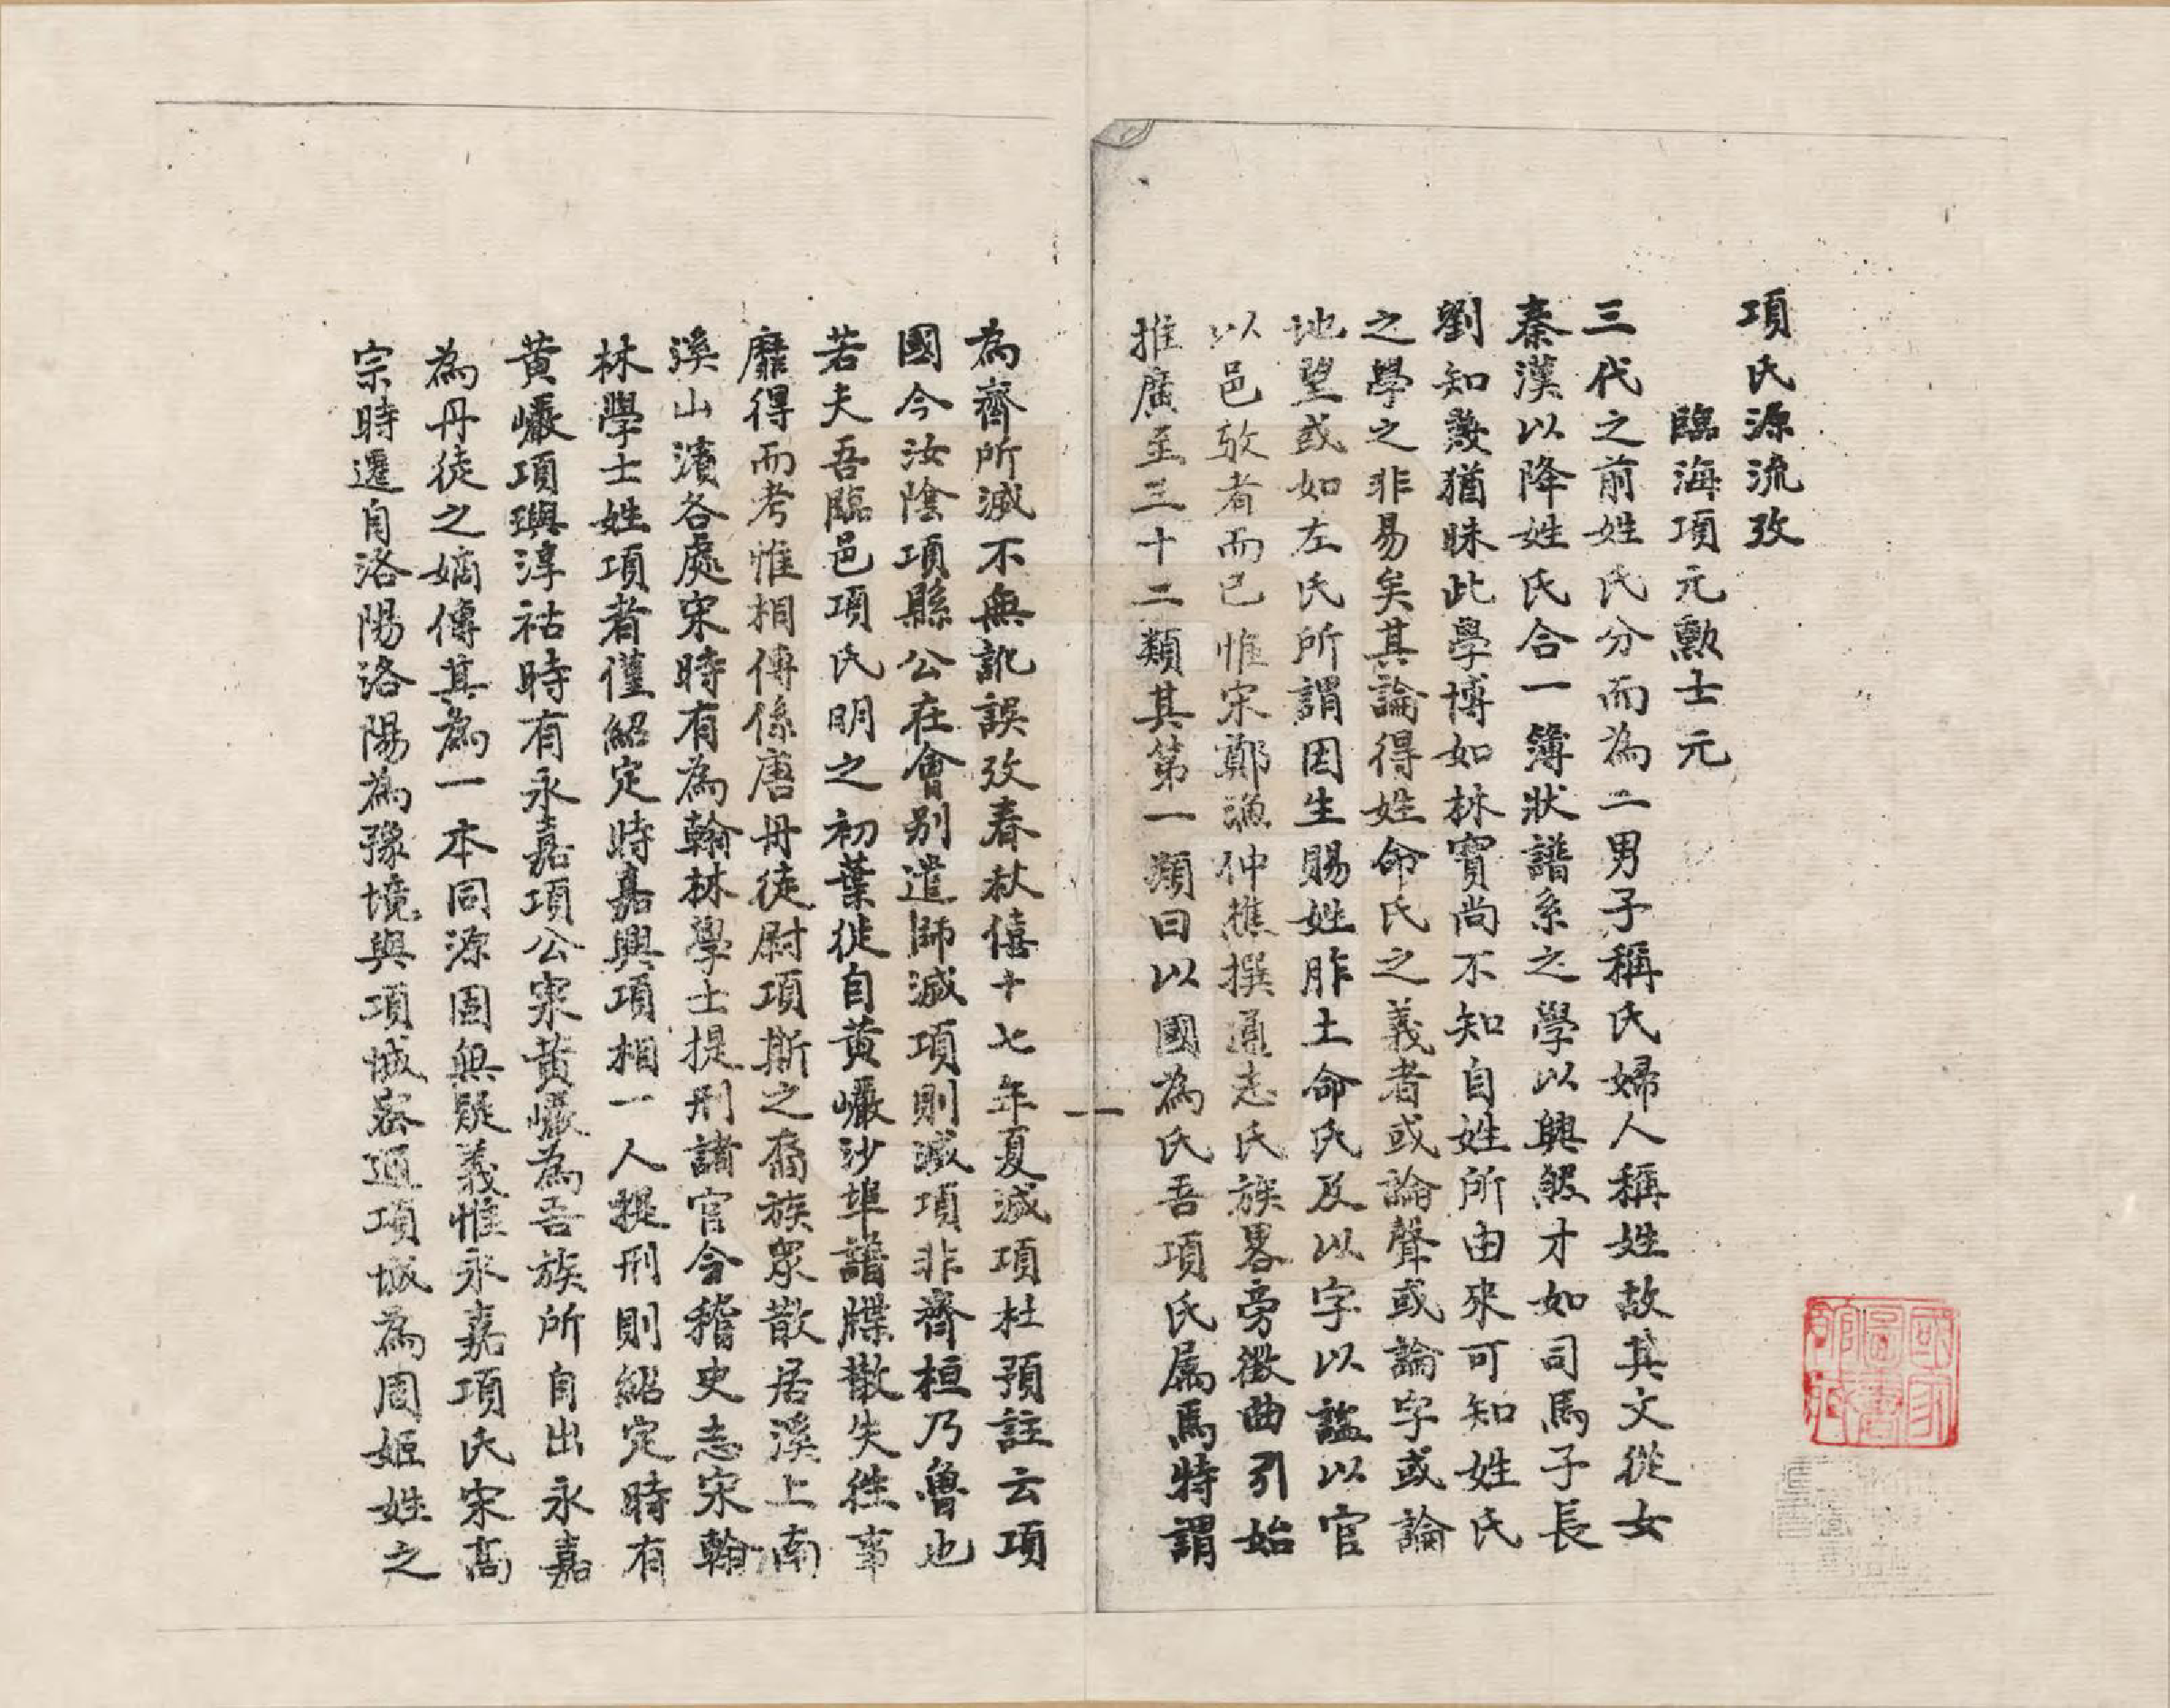 項氏源流攷
臨海項元勳士元
三代之前姓氏分而為二男子稱氏婦人稱姓故其文從女
秦漢以降姓氏合一簿狀譜系之學以興然才如司馬子長
劉知幾猶昧此學博如林寶尚不知自姓所由來可知姓氏
之學之非易矣其論得姓命氏之義者或論聲或論字或論
地望或如左氏所謂因生賜姓胙土命氏及以字以謚以官
以邑攷者而已惟宋鄭漁仲樵撰通志氏族畧旁徵曲引始
推廣至三十二類其第一類曰以國為氏吾項氏屬焉特謂
為齊所滅不無訛誤攷春秋僖十七年夏滅項杜預註云項
國今汝陰項縣公在會別遣師滅項則滅項非齊桓乃魯也
若夫吾臨邑項氏明之初葉徙自黃巖沙埠譜牒散失往事
靡得而考惟相傳係唐丹徒尉項斯之裔族眾散居溪上南
溪山濱各處宋時有為翰林學士提刑諸官今稽史志宋翰
林學士姓項者僅紹定時嘉興項相一人提刑則紹定時有
黃巖項璵淳祐時有永嘉項公寀黃巖為吾族所自出永嘉
為丹徒之嫡傳其為一本同源固無疑義惟永嘉項氏宋高
宗時遷自洛陽洛陽為豫境與項城密邇項城為周姬姓之
一
國家圖書館藏